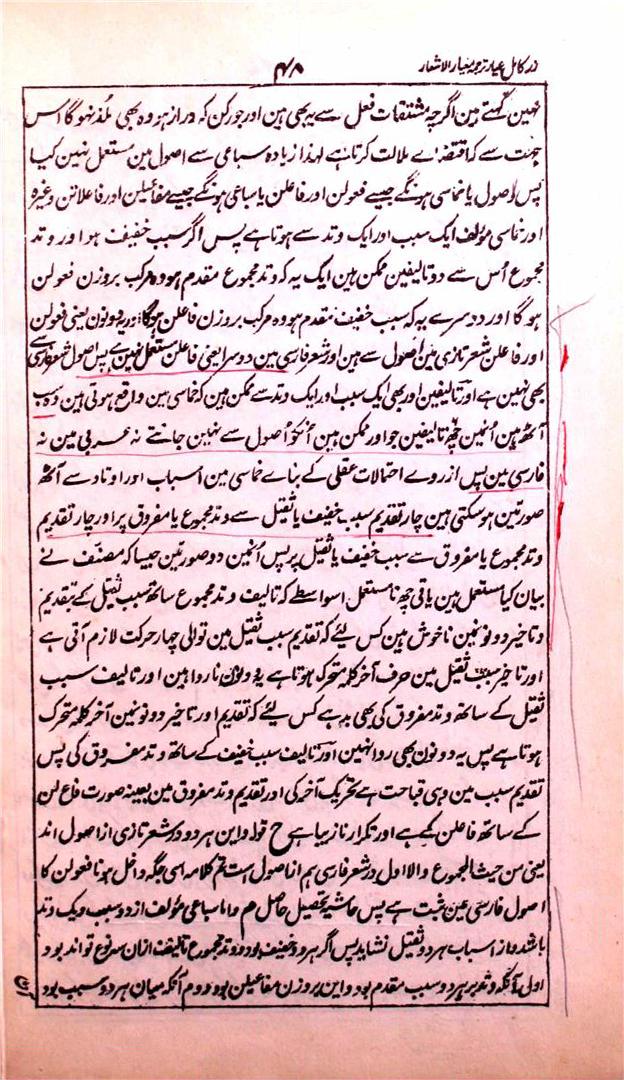 زر کامل عیار ترجمہ معیار الاشعار
۴۸
نہین کہتے ہین اگرچہ مشتقات فعل سے یہ بھی ہین اور جو رکن کہ دراز ہو وہ بھی ملذ نہوگا اس
جہت سے کہ اقتضاے ملالت کرتا ہے لہذا زیادہ سباعی سے اصول مین مستعمل نہین کیا
پس اصول یا خماسی ہونگے جیسے فعولن اور فاعلن یا سباعی ہونگے جیسے مفاعیلن اور فاعلاتن وغیرہ
اور خماسی مؤلف ایک سبب اور ایک وتد سے ہوتا ہے پس اگر سبب خفیف ہو اور وتد
مجموع اُس سے دو تالیفین ممکن ہین ایک یہ کہ وتد مجموع مقدم ہو وہ مرکب بروزن فعولن
ہوگا اور دوسرے یہ کہ سبب خفیف مقدم ہو وہ مرکب بروزن فاعلن ہوگا اور یہ دونون یعنی فعولن
اور فاعلن شعر تازی مین اصول سے ہین اور شعر فارسی مین دوسرا یعنی فاعلن مستعمل نہین ہے پس اصول شعر فارسی سے
بھی نہین ہے اور تالیفین اور بھی ایک سبب اور ایک وتد سے ممکن ہین کہ خماسی مین واقع ہوتی ہین وہ سب
آٹھ ہین اُنمین چھ تالیفین جو اور ممکن ہین اُنکو اُصول سے نہین جانتے نہ عربی مین نہ
فارسی مین پس از روے احتمالات عقلی کے بناے خماسی مین اسباب اور اوتاد سے آٹھ
صورتین ہو سکتی ہین چار تقدیم سبب خفیف یا ثقیل سے وتد مجموع یا مفروق پر اور چار تقدیم
وتد مجموع یا مفروق سے سبب خفیف یا ثقیل پر پس اُنمین دو صورتین جیسا کہ مصنف نے
بیان کیا مستعمل ہین باقی چھ نا مستعمل اسواسطے کہ تالیف وتد مجموع ساتھ سبب ثقیل کے بتقدیم
و تاخیر دونونین ناخوش ہین کس لیئے کہ تقدیم سبب ثقیل مین توالی چہار حرکت لازم آتی ہے
اور تاخیر سبب ثقیل مین حرف آخر کلمہ متحرک ہوتا ہے یہ دونون ناروا ہین اور تالیف سبب
ثقیل کے ساتھ وتد مفروق کی بھی بد ہے کس لیئے کہ تقدیم اور تاخیر دونونین آخر کلمہ متحرک
ہوتا ہے پس یہ دونون بھی روا نہین اور تالیف سبب خفیف کے ساتھ وتد مفروق کی پس
تقدیم سبب مین وہی قباحت ہے تحریک آخر کی اور تقدیم وتد مفروق مین بعینہ صورت فاع لن
کے ساتھ فاعلن کے ہے اور تکرار نازیبا ہے ح قولہ و این ہر دو در شعر تازی از اصول اند
یعنی من حیث المجموع و الا اول در شعر فارسی ہم از اصول است تم کلامہ اسی جگہ داخل ہونا فعولن کا
اصول فارسی مین مثبت ہے پس حاشیہ تحصیل حاصل م و اما سباعی مؤلف از دو سبب و یک وتد
باشد و از اسباب ہر دو ثقیل نشاید پس اگر ہر دو خفیف بود و وتد مجموع تالیفت ازان سہ نوع تواند بود
اول آنکہ وتد بر ہر دو سبب مقدم بود و این بر وزن مفاعیلن بود دوم آنکہ میان ہر دو سبب بود